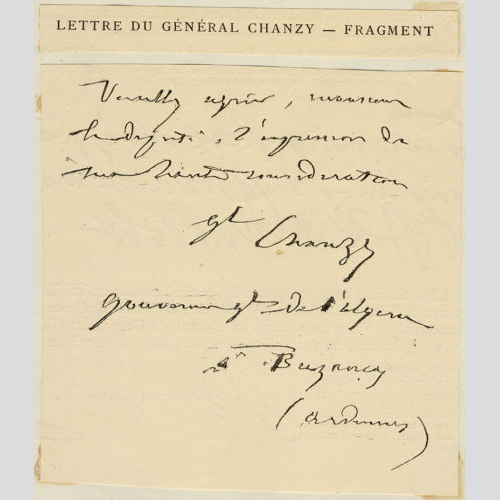 LETTRE DU GÉNÉRAL CHANZY — FRAGMENT
Veuillez agréer, monsieur
le député, l'expression de
ma haute considération
Gl Chanzy
gouverneur gl de l'algerie
à Buzancy
(ardennes)